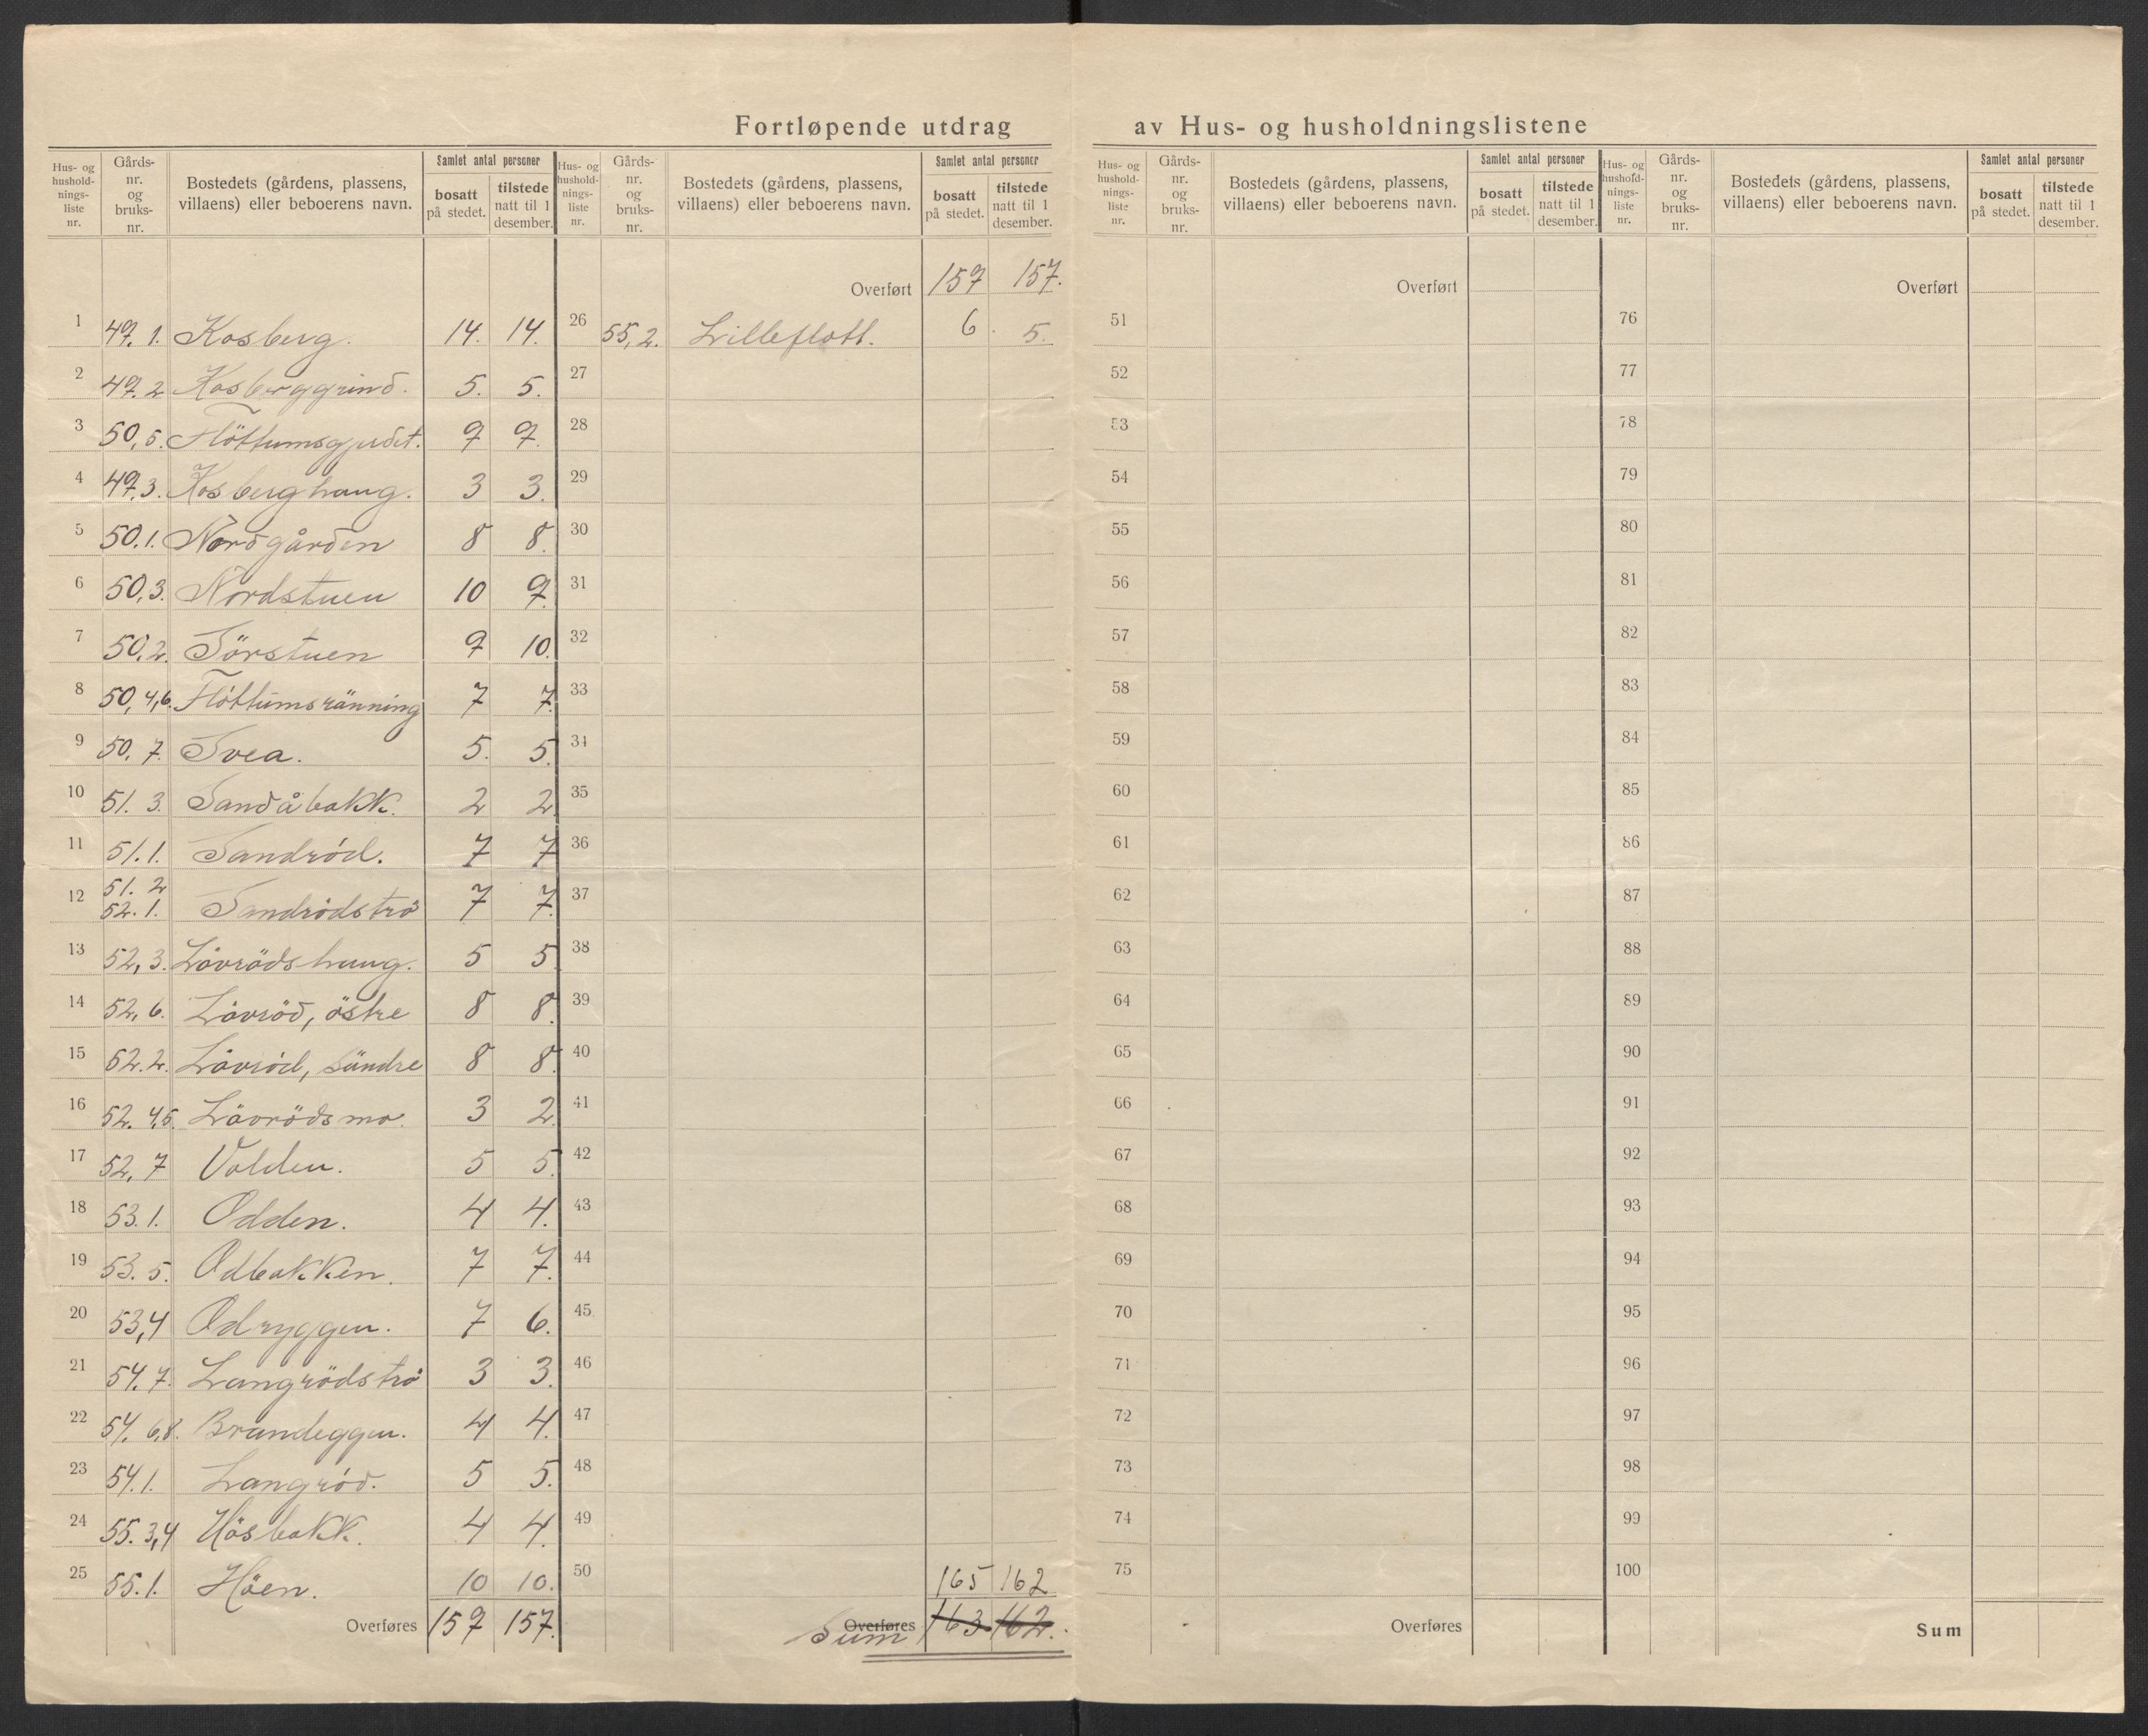 Fortløpende utdrag av Hus- og husholdningslistene
Hus- og hushold-nings-liste nr. Gårds-nr. og bruks-nr. Bostedets (gårdens, plassens, villaens) eller beboerens navn. Samlet antal personer bosatt på stedet. tilstede natt til 1 desember.
1 49. 1. Kosberg. 14. 14.
2 49. 2 Kosberggrind. 5. 5.
3 50, 5. Flöttumsgjerdet. 9 9.
4 49, 3. Kosberghaug. 3 3.
5 50. 1. Nordgården 8 8.
6 50, 3. Nordstuen 10 9.
7 50, 2. Sörstuen 9 10.
8 50, 4, 6. Flöttumsränning 7 7.
9 50. 7. Svea. 5. 5.
10 51. 3. Sandåbakk. 2 2.
11 51. 1. Sandröd. 7 7
12 51. 2 52. 1. Sandrödströ 7 7.
13 52, 3. Lövrödshaug. 5 5.
14 52, 6. Lövröd, östre 8 8.
15 52. 2. Lövröd, söndre 8 8.
16 52. 4,5. Lövrödsmo. 3 2.
17 52, 7 Volden. 5 5.
18 53. 1. Odden. 4 4.
19 53. 5. Odbakken. 7 7.
20 53, 4 Odryggen. 7 6.
21 54. 7. Langrödströ 3 3.
22 54. 6,8. Brandeggen. 4 4.
23 54. 1. Langröd. 5 5.
24 55. 3,4 Hösbakk. 4 4.
25 55. 1. Höen. 10 10.
Overføres 159 157.
Hus- og hushold-nings-liste nr. Gårds-nr. og bruks-nr. Bostedets (gårdens, plassens, villaens) eller beboerens navn. Samlet antal personer bosatt på stedet. tilstede natt til 1 desember.
Overført 159 157.
26 55, 2. Lilleflott. 6. 5.
27
28
29
30
31
32
33
34
35
36
37
38
39
40
41
42
43
44
45
46
47
48
49
50 165 162
Overføres Sum 163 162.
Hus- og hushold-nings-liste nr. Gårds-nr. og bruks-nr. Bostedets (gårdens, plassens, villaens) eller beboerens navn. Samlet antal personer bosatt på stedet. tilstede natt til 1 desember.
Overført
51
52
53
54
55
56
57
58
59
60
61
62
63
64
65
66
67
68
69
70
71
72
73
74
75
Overføres
Hus- og hushold-nings-liste nr. Gårds-nr. og bruks-nr. Bostedets (gårdens, plassens, villaens) eller beboerens navn. Samlet antal personer bosatt på stedet. tilstede natt til 1 desember.
Overført
76
77
78
79
80
81
82
83
84
85
86
87
88
89
90
91
92
93
94
95
96
97
98
99
100
Sum